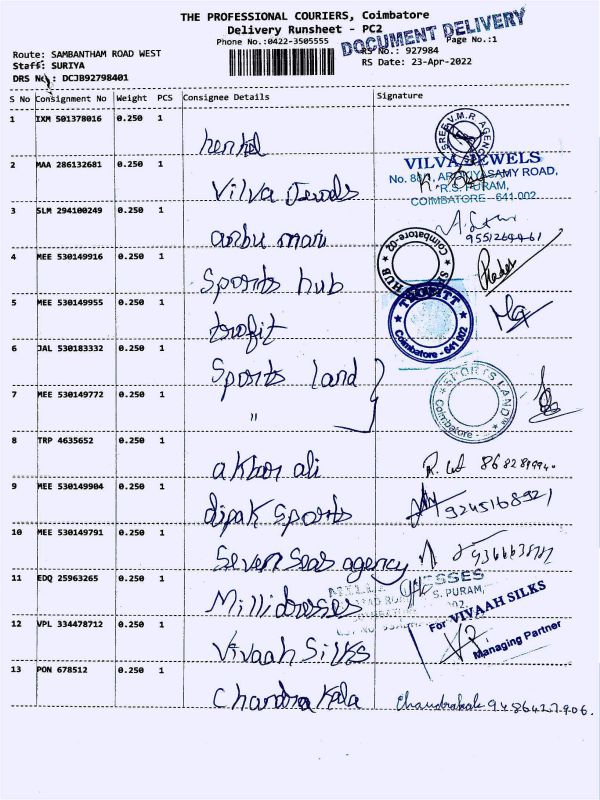 THE PROFESSIONAL COURIERS, Coimbatore
Delivery Runsheet - PC2
Phone No.:0422-3505555
DOCUMENT DELIVERY
Page No.:1
Route: SAMBANTHAM ROAD WEST
RS No.: 927984
Staff: SURIYA
RS Date: 23-Apr-2022
DRS No.: DCJB92798401
S No Consignment No Weight PCS Consignee Details Signature
1 IXM 501378016 0.250 1
SREE V.M.R. AGENC
2 MAA 286132681 0.250 1 Vilva Jewels
VILVA JEWELS
ROAD,
R.S. PURAM,
COIMBATORE - 641 002
3 SLM 294100249 0.250 1 anbu mani
4 MEE 530149916 0.250 1 Sports hub
Coimbatore-02
HUB
5 MEE 530149955 0.250 1
Coimbatore - 641 002
6 JAL 530183332 0.250 1 Sports land
7 MEE 530149772 0.250 1 "
SPORTS LAND
Coimbatore
8 TRP 4635652 0.250 1 akbar ali
9 MEE 530149904 0.250 1 dipak sports
9245168921
10 MEE 530149791 0.250 1 Seven Seas agency
11 EDQ 25963265 0.250 1 Millidresses
S. PURAM,
12 VPL 334478712 0.250 1 Vivaah Silks
For VIVAAH SILKS
Managing Partner
13 PON 678512 0.250 1 Chandra Kala
Chandrakala 9486427906.